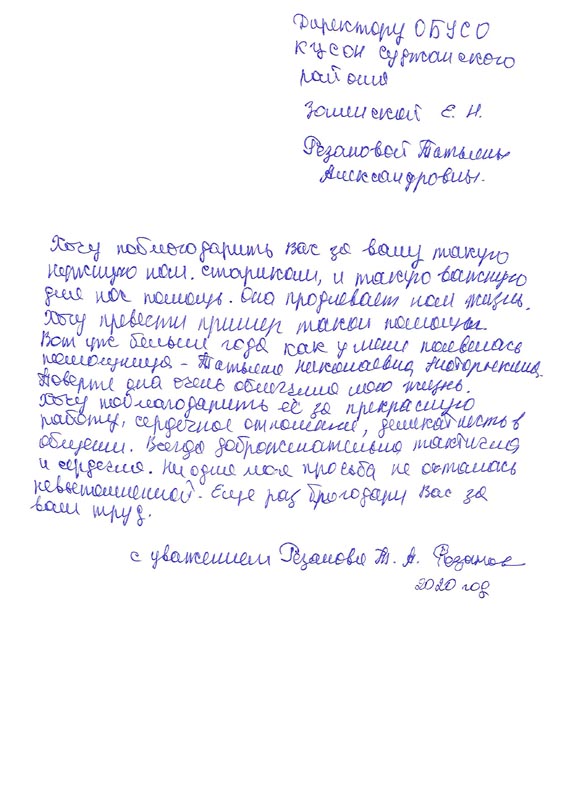 Директору ОБУСО
КЦСОН Суджанского
района
Е. Н.
Резановой Татьяны
Александровны.
Хочу поблагодарить Вас за вашу такую
нужную нам старикам, и такую важную
для нас помощь. Она продлевает нам жизнь.
Хочу превести пример такой помощи.
Вот уже больше года как у меня появилась
помощница - Татьяна Николаевна
Поверте она очень облегчила мою жизнь.
Хочу поблагодарить её за прекрасную
работу, сердечное отношение, деликатность в
общении. Всегда доброжелательна тактична
и сердечна. Ни одна моя просьба не осталась
невыполненной. Еще раз благодарю Вас за
ваш труд.
с уважением Резанова Т. А. Резанов
2020 год